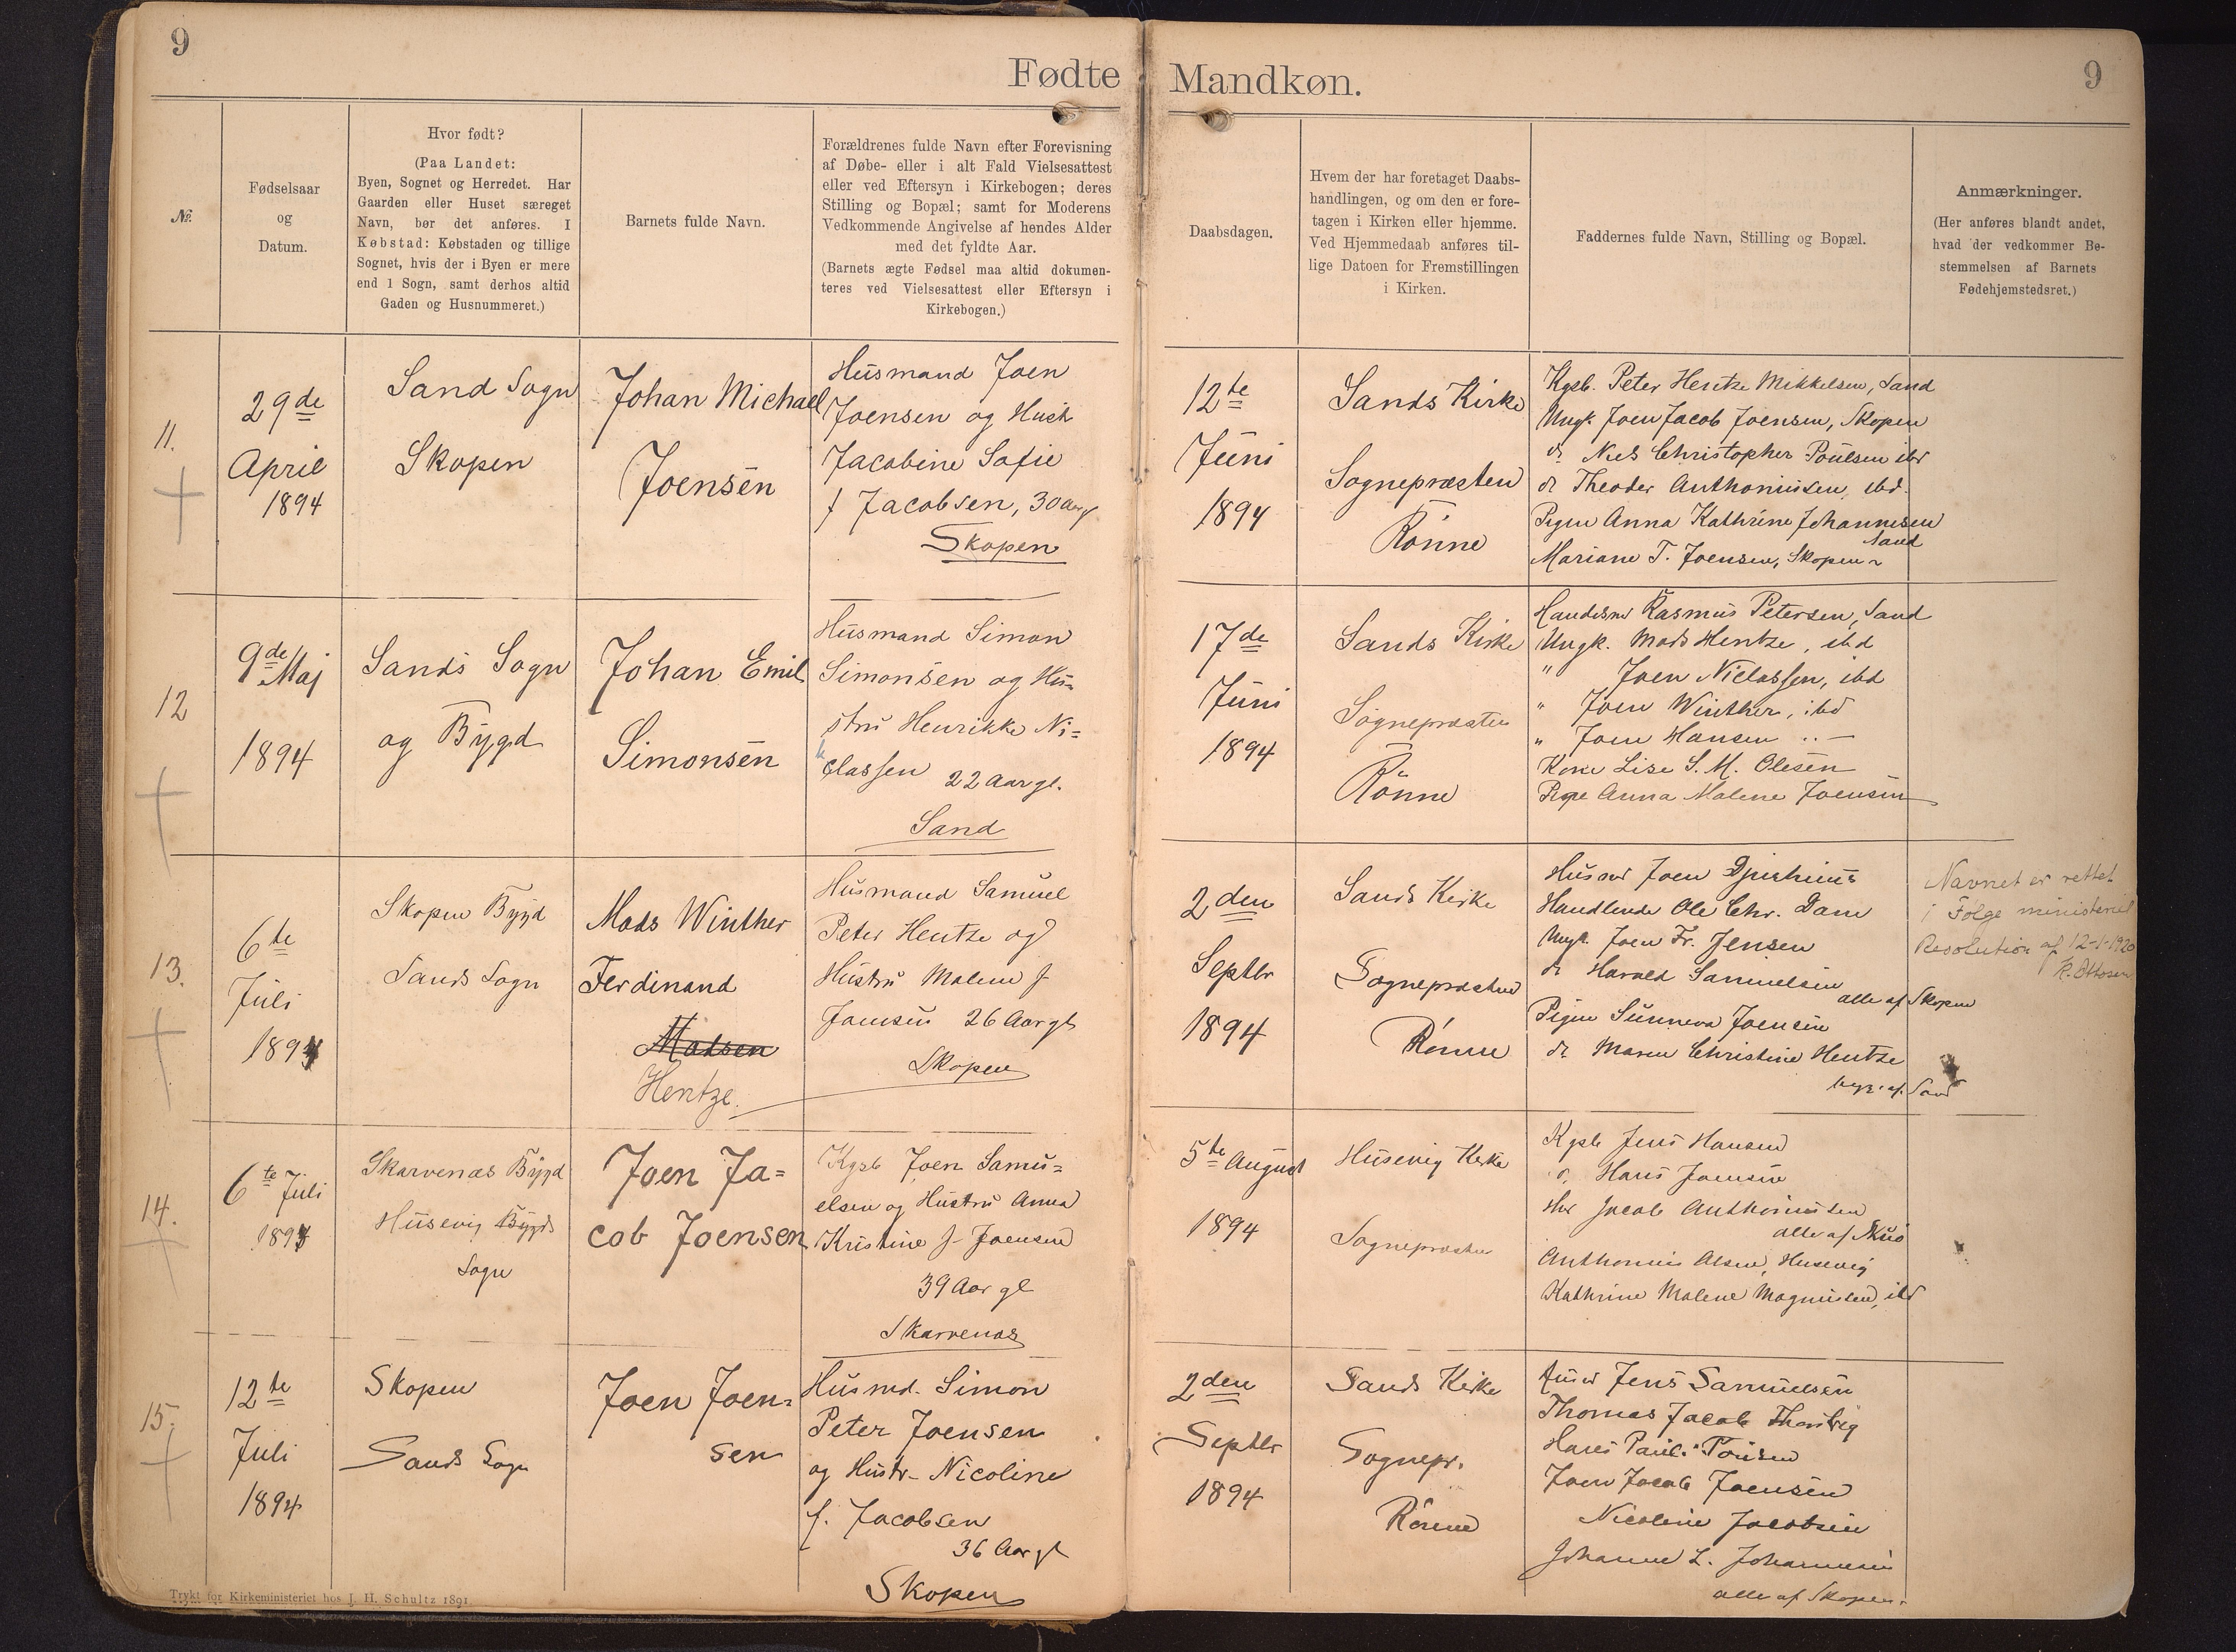 9
Fødte
Mandkøn.
9
№.
Fødselsaar
og
Datum.
Hvor født?
(Paa Landet:
Byen, Sognet og Herredet. Har
Gaarden eller Huset særeget
Navn, bør det anføres. I
Købstad: Købstaden og tillige
Sognet, hvis der i Byen er mere
end 1 Sogn, samt derhos altid
Gaden og Husnummeret.)
Barnets fulde Navn.
Forældrenes fulde Navn efter Forevisning
af Døbe- eller i alt Fald Vielsesattest
eller ved Eftersyn i Kirkebogen; deres
Stilling og Bopæl; samt for Moderens
Vedkommende Angivelse af hendes Alder
med det fyldte Aar.
(Barnets ægte Fødsel maa altid dokumen-
teres ved Vielsesattest eller Eftersyn i
Kirkebogen.)
Daabsdagen.
Hvem der har foretaget Daabs-
handlingen, og om den er fore-
tagen i Kirken eller hjemme.
Ved Hjemmedaab anføres til-
lige Datoen for Fremstillingen
i Kirken.
Faddernes fulde Navn, Stilling og Bopæl.
Anmærkninger.
(Her anføres blandt andet,
hvad der vedkommer Be-
stemmelsen af Barnets
Fødehjemstedsret.)
11.
29de
April
1894
Sand Sogn
Skopen
Johan Michael
Joensen
Husmand Joen
Joensen og Hustr
Jacobine Sofie
f Jacobsen, 30 Aar gl
Skopen
12te
Juni
1894
Sands Kirke
Sognepræsten
Rønne
Kgsb. Peter Hentze Mikkelsen, Sand
Ungk. Joen Jacob Joensen, Skopen
do Niels Christopher Poulsen ibd
do Theodor Anthoniusen, ibd.
Pigen Anna Kathrine Johannesen
Sand
Mariane T. Joensen, Skopen
12
9de Maj
1894
Sands Sogn
og Bygd
Johan Emil
Simonsen
Husmand Simon
Simonsen og Hu-
stru Henrikke Ni=
classen 22 Aar gl.
Sand
17de
Juni
1894
Sands Kirke
Sognepræsten
Rønne
Handelsmd Rasmus Petersen, Sand
Ungk. Mads Hentze, ibd
" Joen Niclassen, ibd
" Joen Winther, ibd
" Joen Hansen " —
Kone Lise S. M. Olesen
Pige Anna Malene Joensen
13.
6te
Juli
1894
Skopen Bygd
Sands Sogn
Mads Winther
Ferdinand
Madsen
Hentze.
Husmand Samuel
Peter Hentze og
Hustru Malene f
Joensen 26 Aar gl
Skopen
2den
Septbr
1894
Sands Kirke
Sognepræsten
Rønne
Husmd Joen
Handlende Ole Chr. Dam
Ungk. Joen Fr. Jensen
do Harald Samuelsen
alle af Skopen
Pigen Sunneva Joensen
do Maren Christine Hentze
begge af Sand
Navnet er rettet
i Følge ministeriel
Resolution af 12-1-1920
K. Ottosen
14.
6te Juli
1894
Skarvenæs Bygd
Husevig Bygds
Sogn
Joen Ja=
cob Joensen
Kgsb Joen Samu=
elsen og Hustru Anna
Kristine f Joensen
39 Aar gl
Skarvenæs
5te August
1894
Husevig Kirke
Sognepræsten
Kgsb Jens Hansen
do Hans Joensen
Jacob Anthoniusen
alle af Skuø
Anthonius Olsen, Husevig
Kathrine Malene Magnussen, ibd
15.
12te
Juli
1894
Skopen
Sands Sogn
Joen Joen-
sen
Husmd. Simon
Peter Joensen
og Hustr. Nicoline
f. Jacobsen
36 Aar gl
Skopen
2den
Septbr
1894
Sands Kirke
Sognepr.
Rønne
Jens Samuelsen
Thomas Jacob
Hans Paul Poulsen
Joen Jacob Joensen
Nicoline Jacobsen
Johanne L. Johannesen
alle af Skopen.
Trykt for Kirkeministeriet hos J. H. Schultz 1891